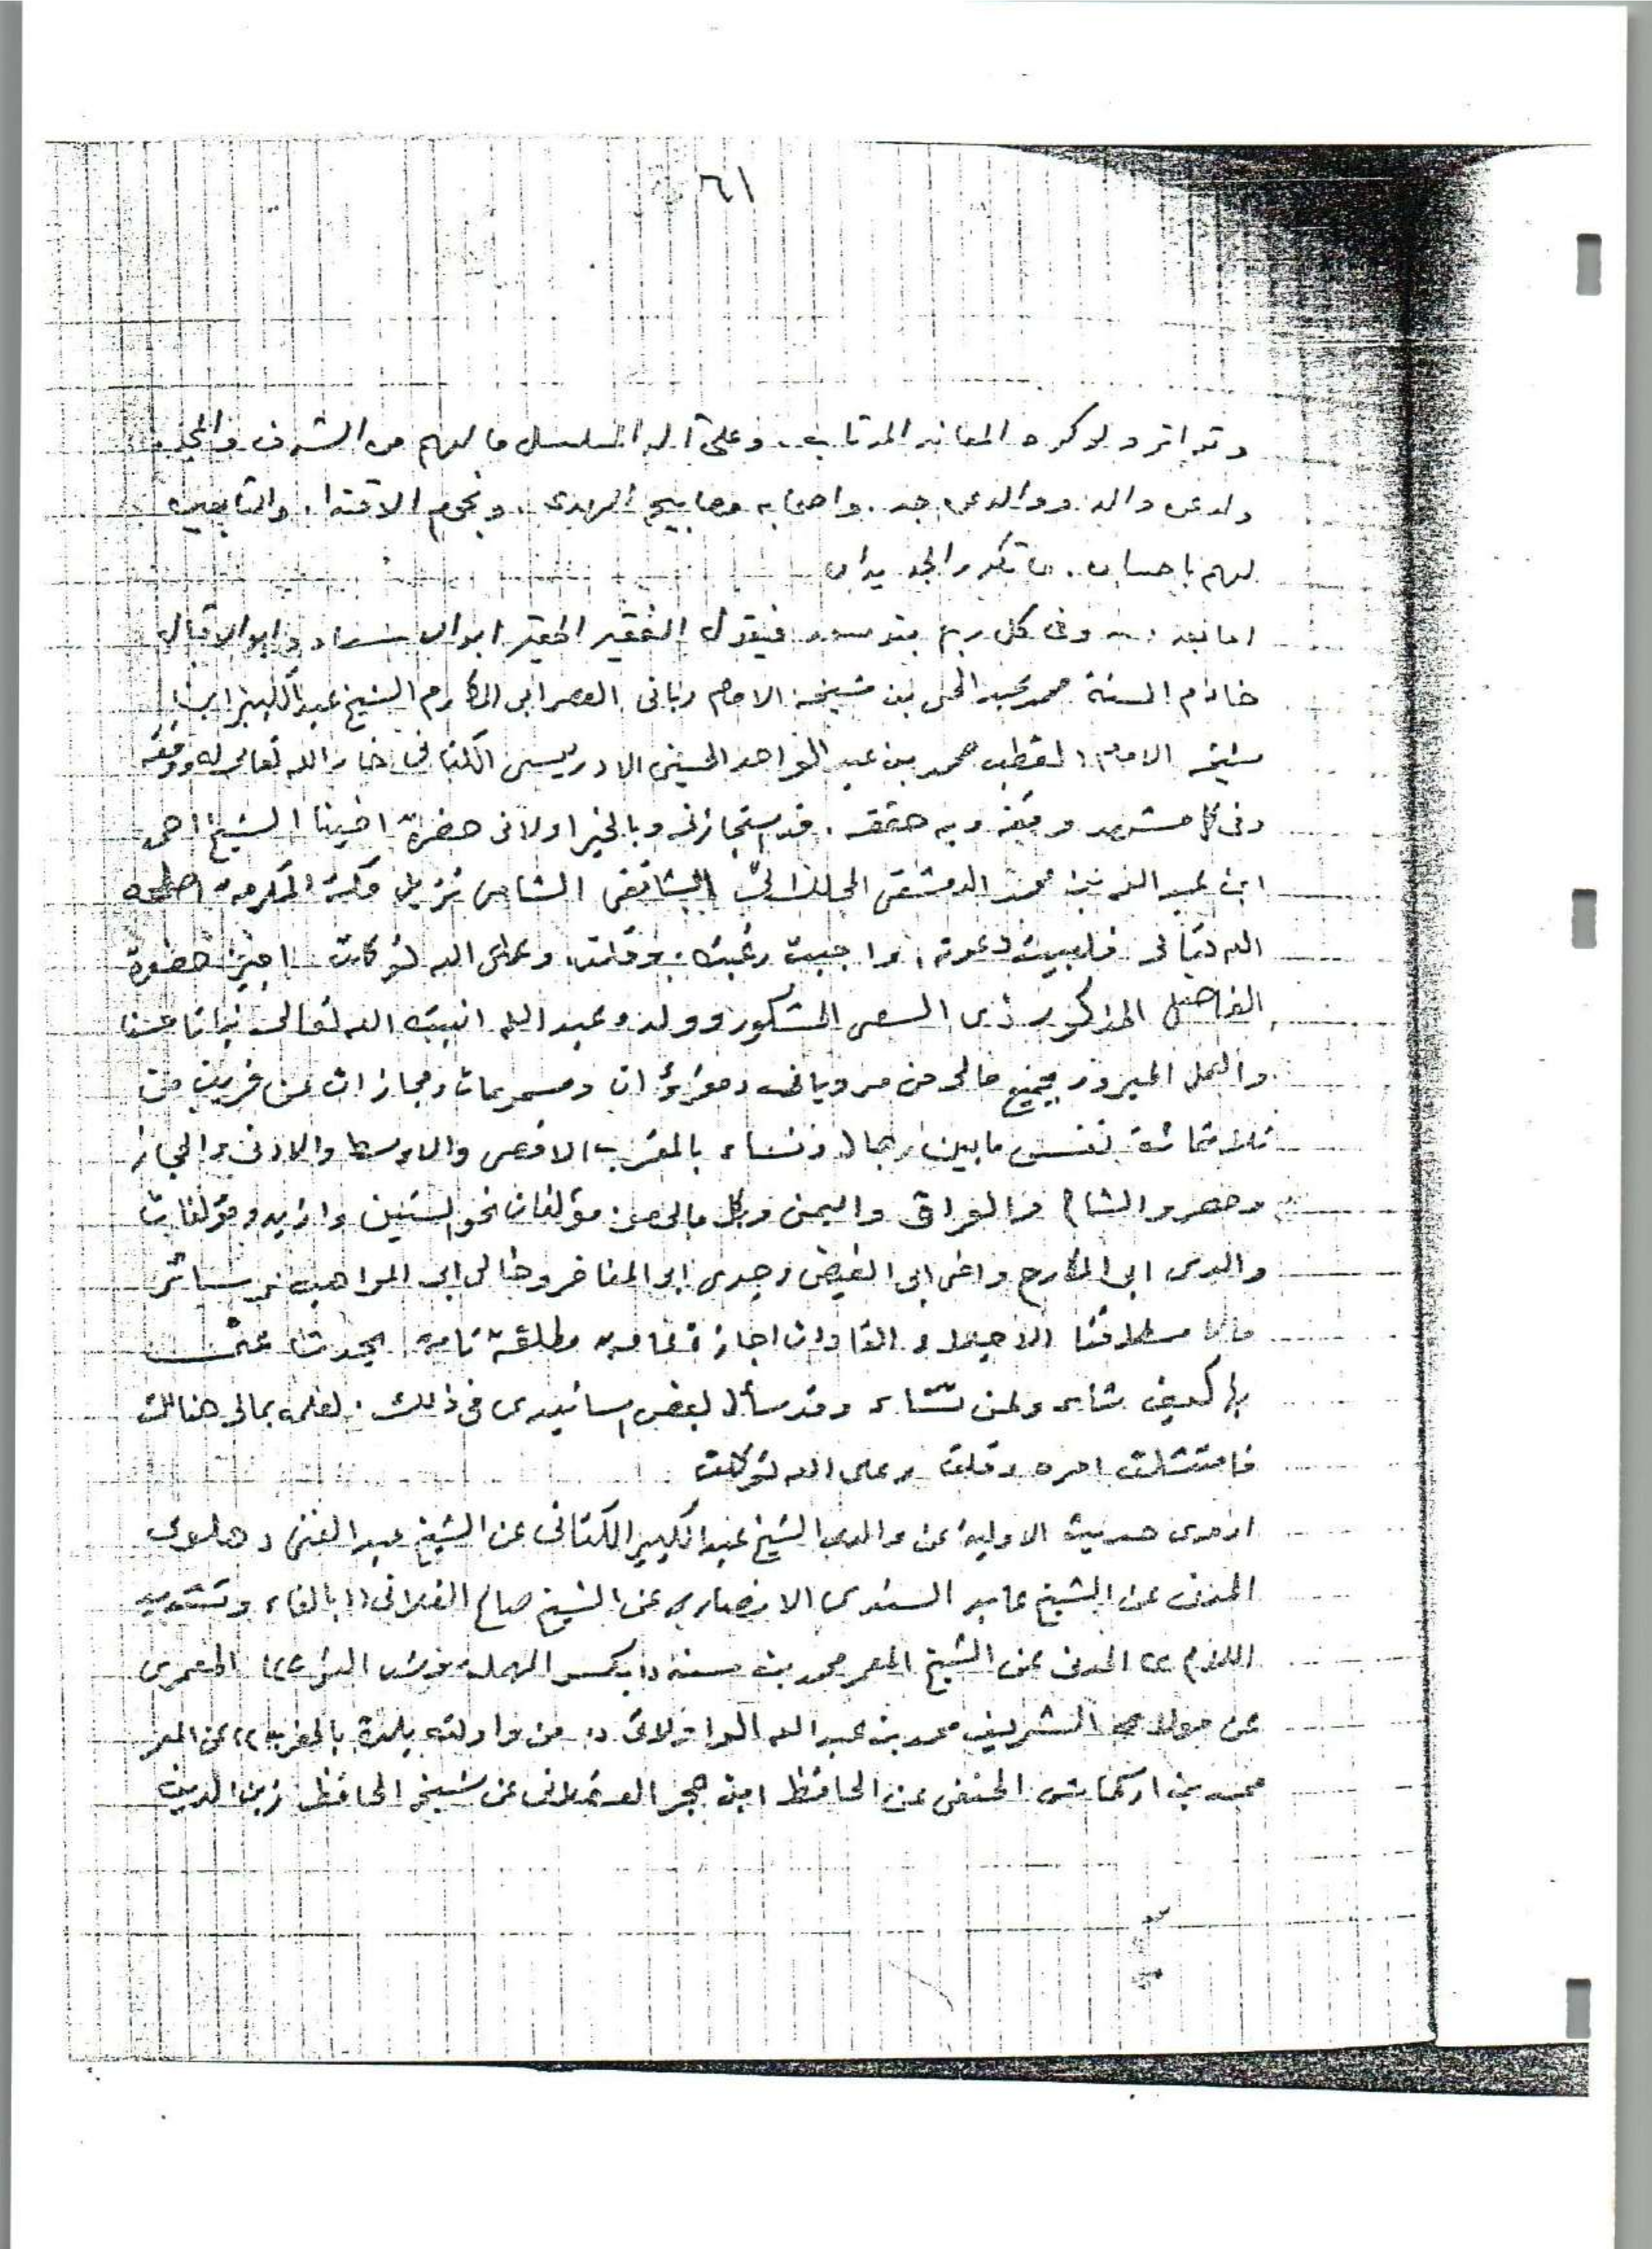 ٦١
وتواتر ولو كره المعاند المرتاب. وعلى آله المسلسل ما لهم من الشرف والمجد
ولد عن والد ووالد عن جد. واصحابه مصابيح الهدى. ونجوم الاقتدا. والتابعين
لهم باحسان. ما تكرر الجديدان
اما بعد فيقول الفقير الحقير ابو الاسعاد وابو الاقبال
خادم السنة محمد عبد الحي بن شيخه الامام رباني العصر ابي المكارم الشيخ عبد الكبير ابن
شيخه الامام القطب محمد بن عبد الواحد الحسني الادريسي الكتاني خار الله تعالى له ووفقه
وفي كل مشهد وقفه وبه حققه. قد استجازني وبالخير اولاني حضرة اخينا الشيخ احمد
ابن عبد الله بن محمد الدمشقي الشافعي الشامي نزيل مكة المكرمة اصلحه
الله تعالى فلبيت دعوته واجبت رغبته. وقلت وعلى الله توكلت اجيز حضرة
الفاضل المذكور ذي السعي المشكور وولده عبد الله انبته الله تعالى نباتا حسنا
والعمل المبرور بجميع مالي من مروياتي ومقروآت ومسموعات ومجازات عن قريب من
ثلاثمائة نفس ما بين رجال ونساء بالمغرب الاقصى والاوسط والادنى والحجاز
ومصر والشام والعراق واليمن وبكل مالي من مؤلفات نحو الستين وازيد ومؤلفات
والدي ابي المكارم واخي ابي الفيض وجدي ابو المفاخر وخالي ابي المواهب وسائر
مالا سلافنا الاجيلاد القادات اجازة عامة مطلقة تامة يحدث عني
بها كيف شاء ولمن شاء وقد سأل بعض اسانيدي في ذلك. لعلمه بمالي هنالك
فامتثلت امره وقلت وعلى الله توكلت
اروى حديث الاولية عن والدي الشيخ عبد الكبير الكتاني عن الشيخ عبد الغني دهلوي
المدني عن الشيخ عابد السندي الانصاري عن الشيخ صالح الفلاني (( بالفاء وتشديد
اللام )) المدني عن الشيخ المعمر محمد بن سنه (( بكسر المهملة العمري
عن مولاي الشريف محمد بن عبد الله الواولاتي (( من واولته بلدة بالمغرب )) عن المعمر
محمد بن اركماش الحنفي عن الحافظ ابن حجر العسقلاني عن شيخه الحافظ زين الدين